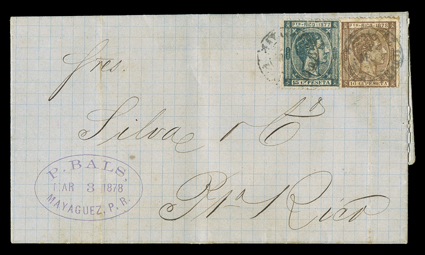 Pto-RICO 1877
Pto-RICO 1878
25 Cs PESETA
Sres.
Silva y Ca
Pto Rico
P. BALS,
MAR 3 1878
MAYAGUEZ, P.R.